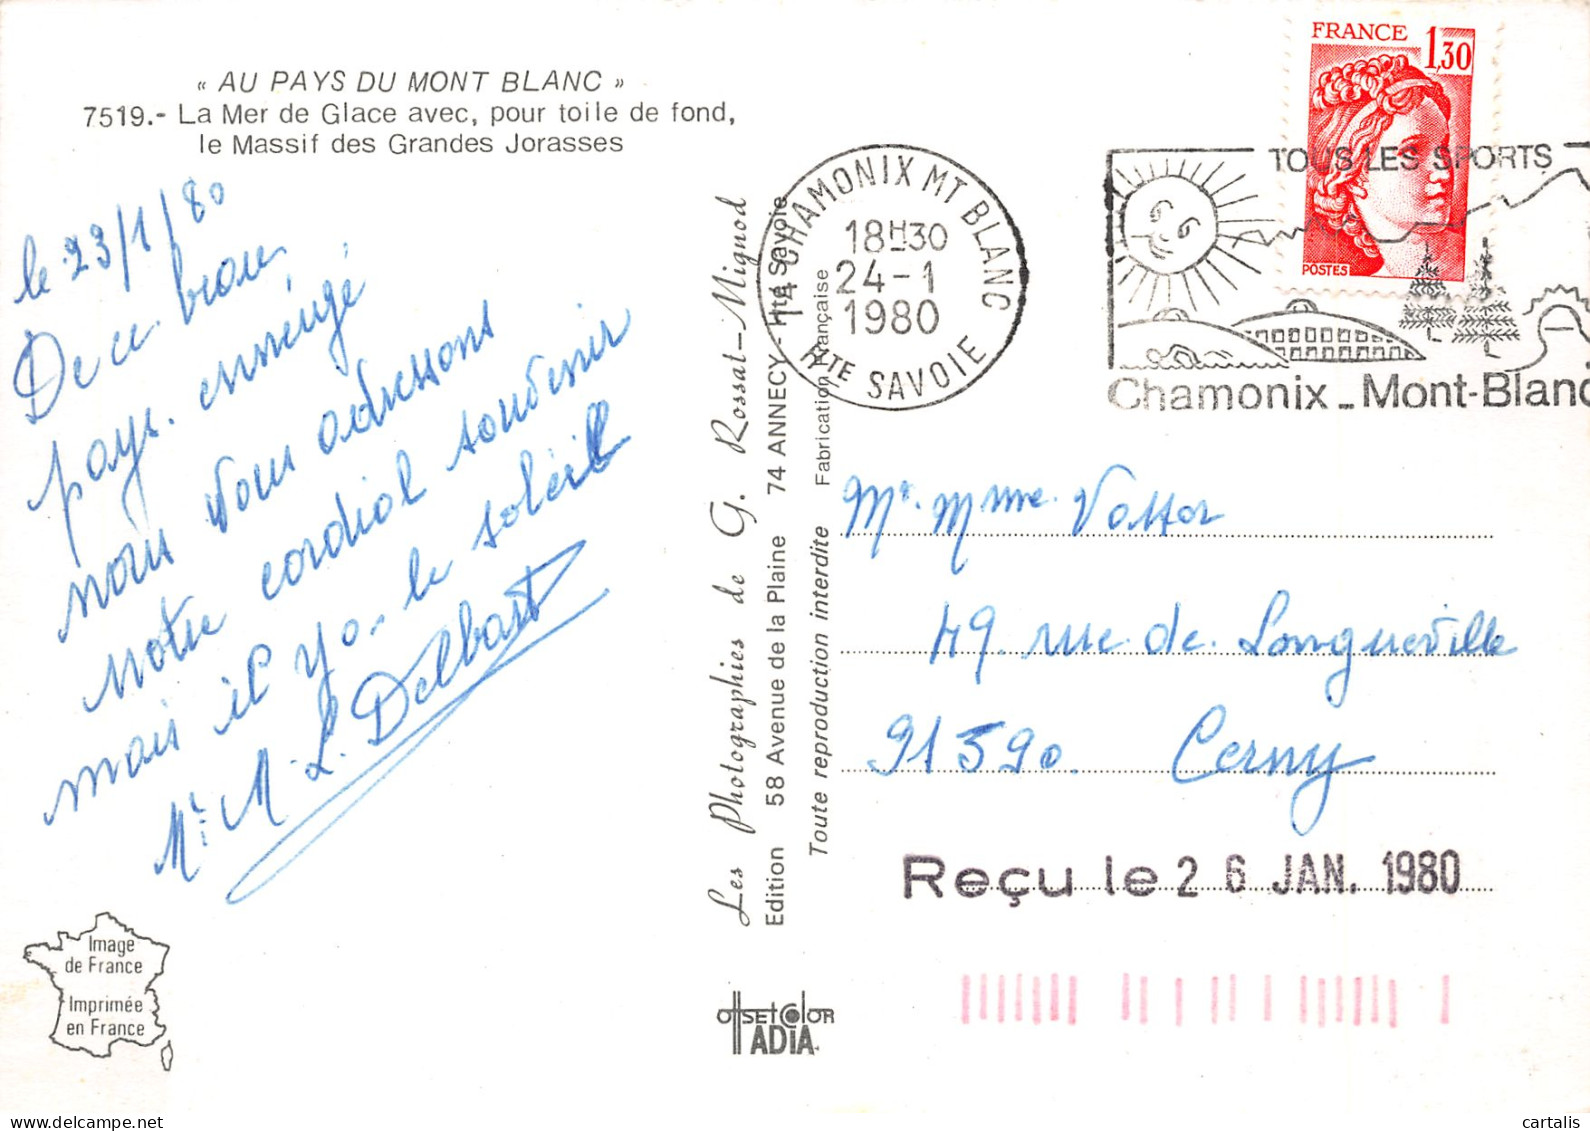 « AU PAYS DU MONT BLANC »
7519.- La Mer de Glace avec, pour toile de fond,
le Massif des Grandes Jorasses
le 23/1/80
De ce beau
pays. enneigé
nous vous adressons
notre cordial souvenir
mais il y a le soleil
Mr M. L. Delbart
Image
de France
Imprimée
en France
Les Photographies de G. Rossat-Mignod
Edition 58 Avenue de la Plaine 74 ANNECY - Hte Savoie
Toute reproduction interdite Fabrication Française
OffSET COLOR
IADIA
74 CHAMONIX MT BLANC
18H30
24-1
1980
HTE SAVOIE
FRANCE
1,30
POSTES
TOUS LES SPORTS
Chamonix - Mont-Blanc
Mr. Mme. Vattor
49. rue de. Longueville
91590. Cerny
Reçu le 26 JAN. 1980
cartalis
www.delcampe.net